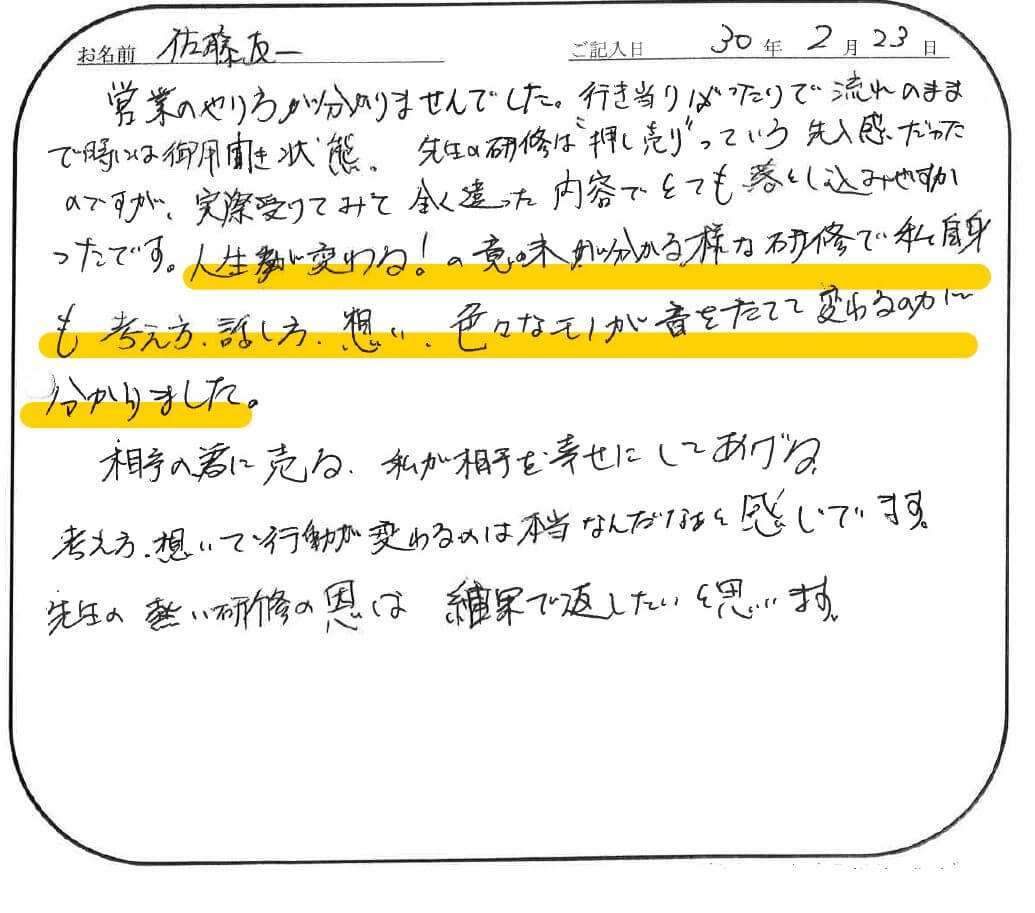 お名前 佐藤友一 ご記入日 30年2月23日
営業のやり方が分かりませんでした。行き当りばったりで流れのまま
で時には御用聞き状態。先生の研修は"押し売り"っていう先入感だった
のですが、実際受けてみて全く違った内容でとても落とし込みやすか
ったです。人生が変わる!の意味が分かる様な研修で私自身
も考え方、話し方、想い、色々なモノが音をたてて変わるのが
分かりました。
相手の為に売る、私が相手を幸せにしてあげる、
考え方、想いで行動が変わるのは本当なんだなぁと感じてます。
先生の熱い研修の恩は結果で返したいと思います。